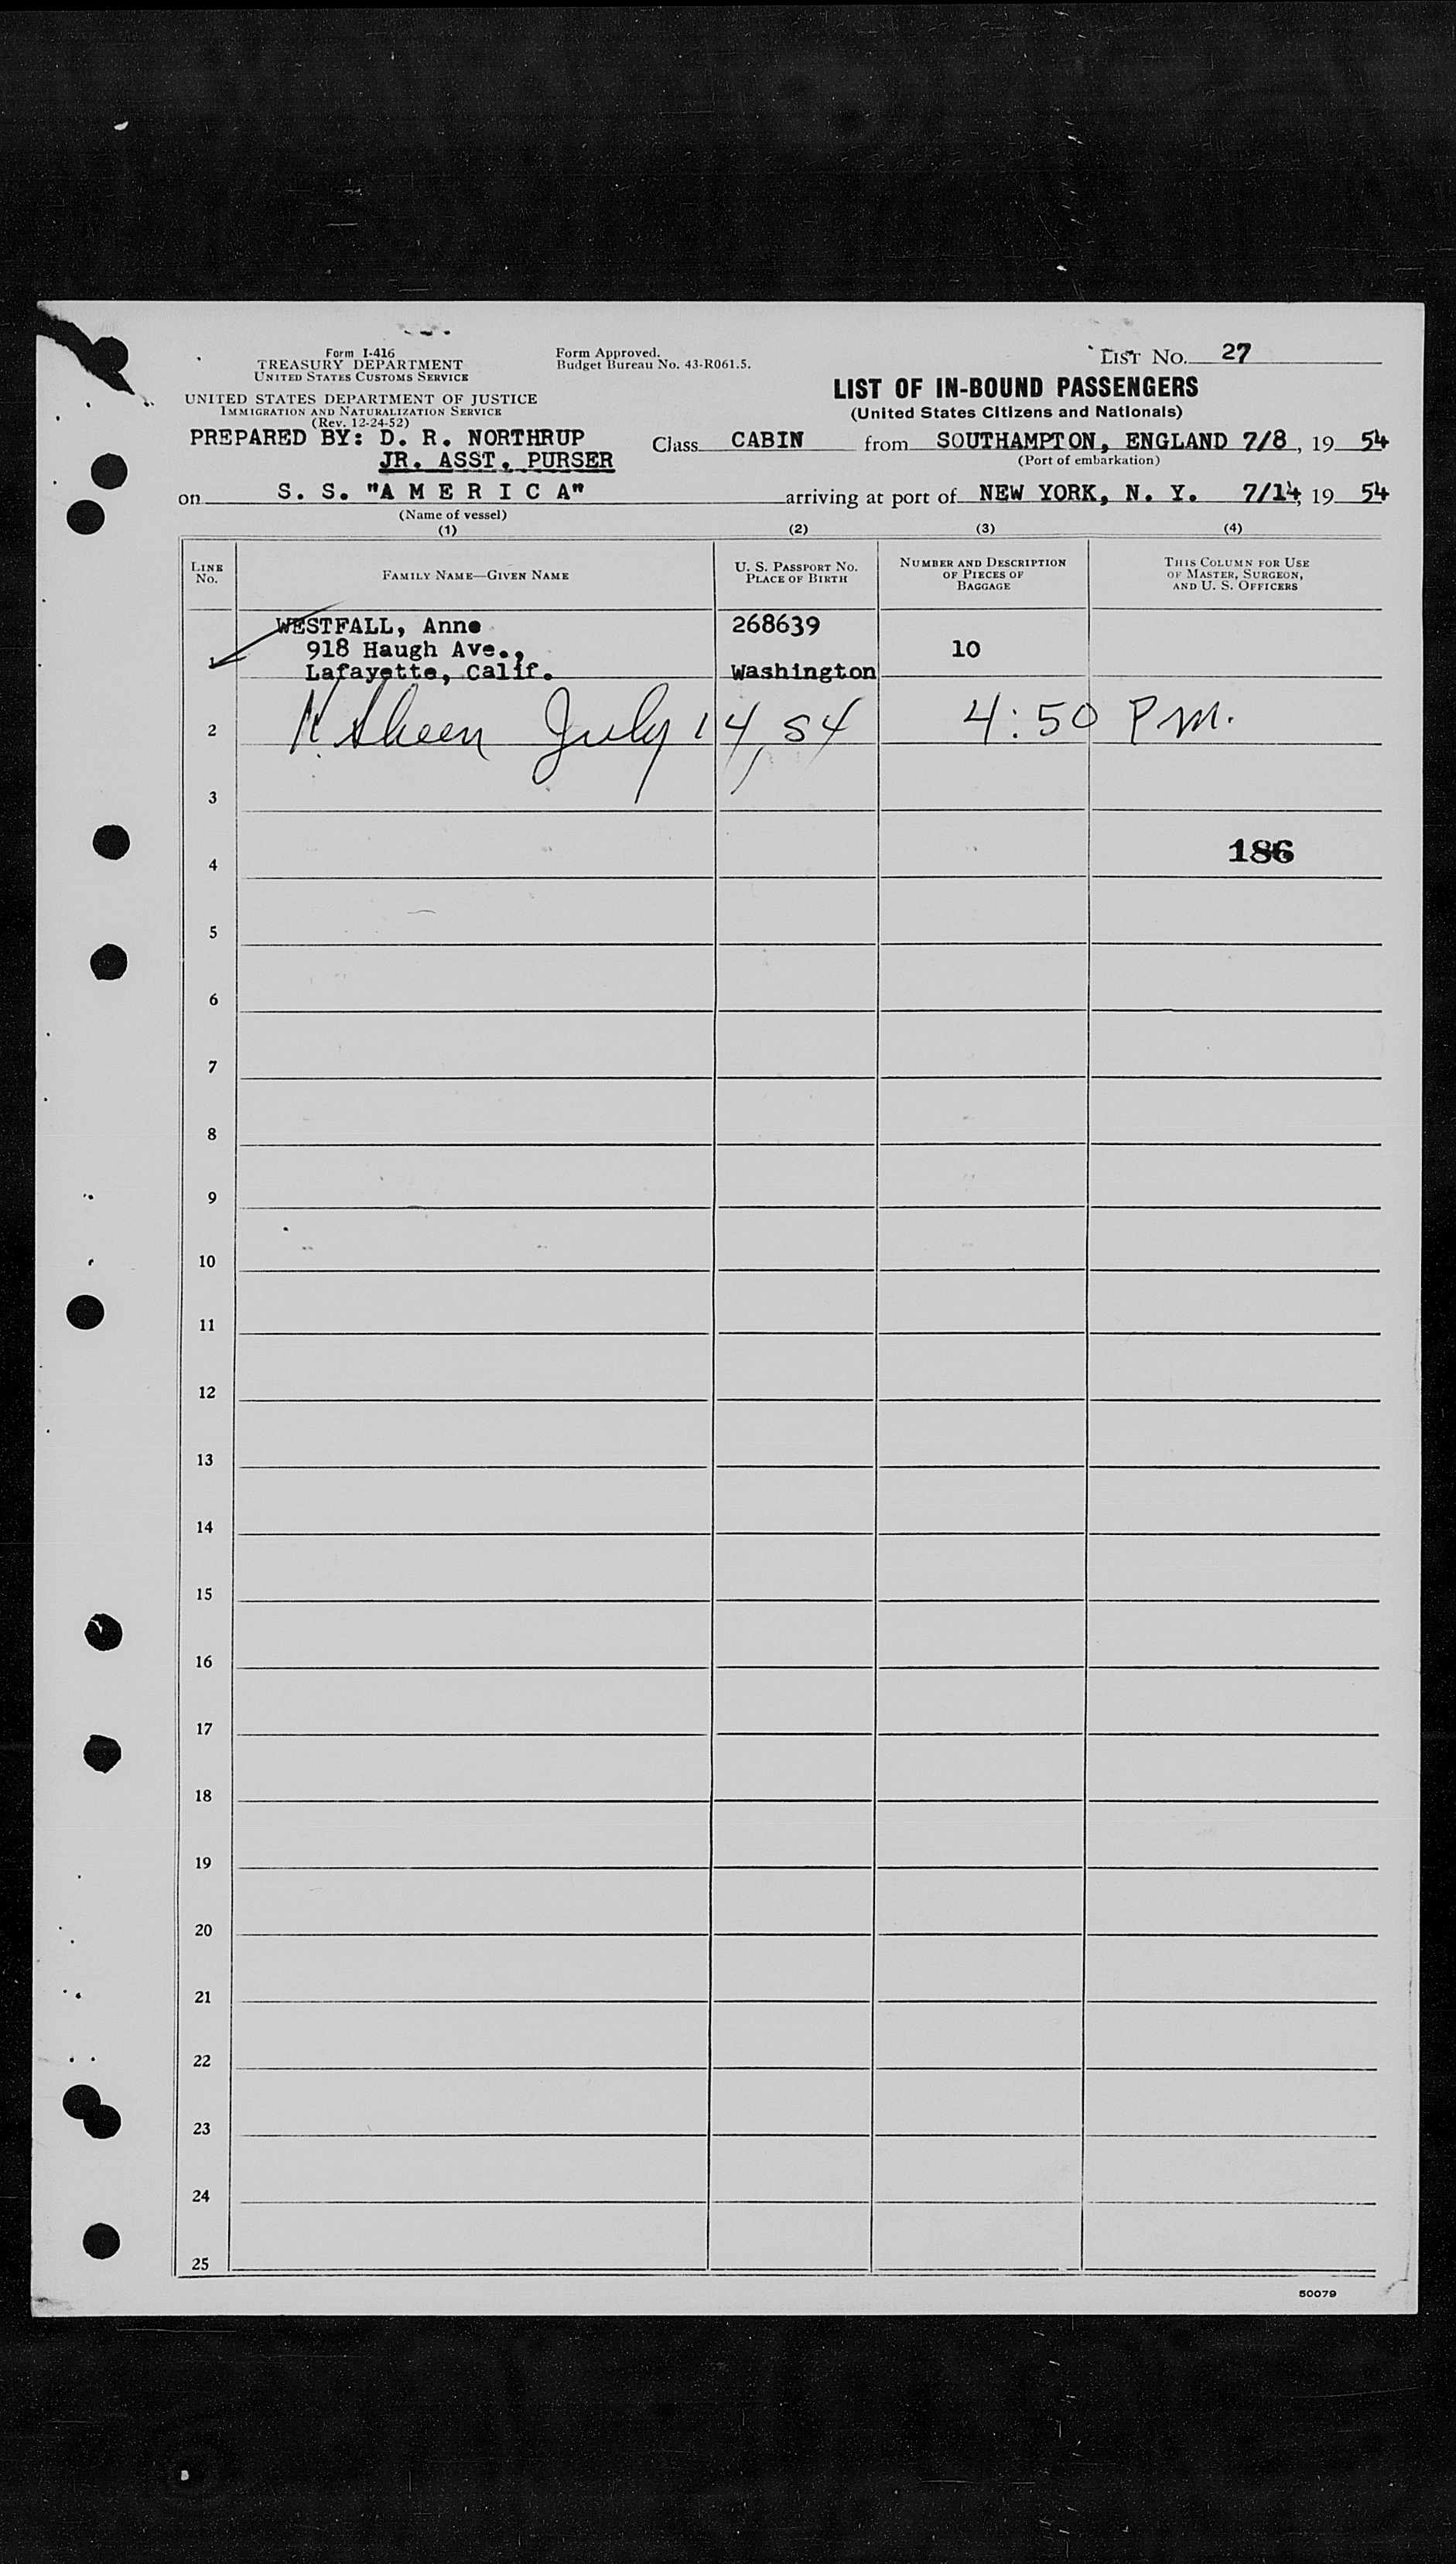 Form I-416
TREASURY DEPARTMENT
UNITED STATES CUSTOMS SERVICE
UNITED STATES DEPARTMENT OF JUSTICE
IMMIGRATION AND NATURALIZATION SERVICE
(Rev. 12-24-52)
Form Approved.
Budget Bureau No. 43-R061.5.
LIST No. 27
LIST OF IN-BOUND PASSENGERS
(United States Citizens and Nationals)
PREPARED BY: D. R. NORTHRUP
JR. ASST. PURSER
Class CABIN from SOUTHAMPTON, ENGLAND 7/8, 19 54
(Port of embarkation)
on S. S. "A M E R I C A" arriving at port of NEW YORK, N. Y. 7/14, 19 54
(Name of vessel)
(1) (2) (3) (4)
LINE No.
FAMILY NAME—GIVEN NAME
U. S. PASSPORT No. PLACE OF BIRTH
NUMBER AND DESCRIPTION OF PIECES OF BAGGAGE
THIS COLUMN FOR USE OF MASTER, SURGEON, AND U. S. OFFICERS
WESTFALL, Anne 268639
918 Haugh Ave., 10
1 Lafayette, Calif. Washington
2 July 14, 54 4:50 PM.
3
4 186
5
6
7
8
9
10
11
12
13
14
15
16
17
18
19
20
21
22
23
24
25
50079